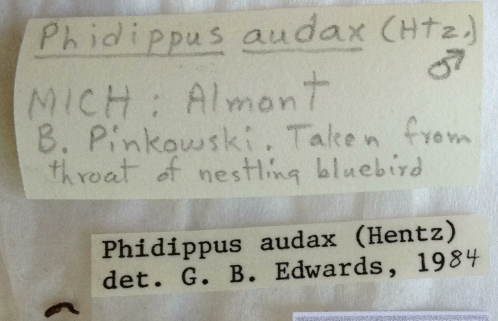 Phidippus audax (Htz.)
♂
MICH: Almont
B. Pinkowski. Taken from
throat of nestling bluebird
Phidippus audax (Hentz)
det. G. B. Edwards, 1984